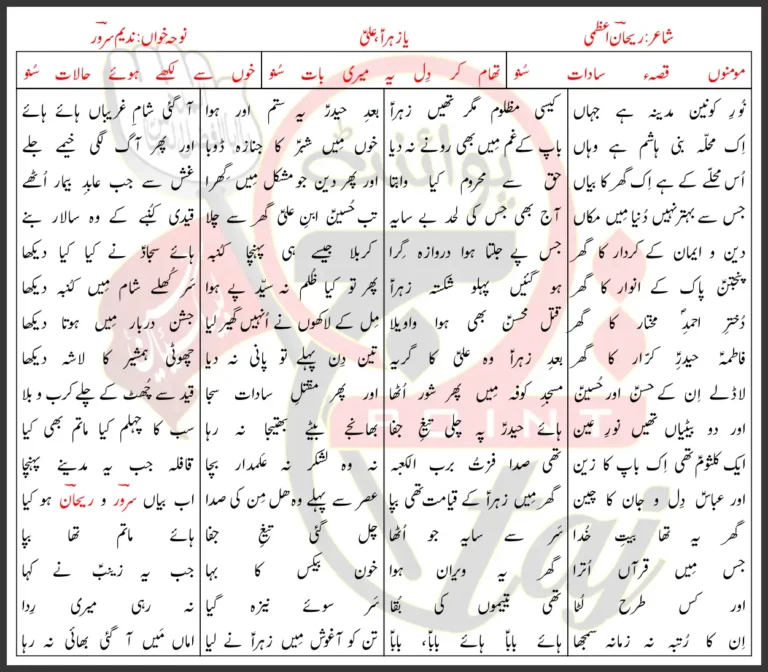 شاعر: ریحان اعظمی
یا زہراؑ، علیؑ
نوحہ خواں: ندیم سرور
مومنوں قصہء سادات سُنو
تھام کر دِل یہ میری بات سُنو
خوں سے لکھے ہوئے حالات سُنو
نُورِ کونین مدینہ ہے جہاں
اِک محلّہ بنی ہاشم ہے وہاں
اُس محلّے کے ہے اِک گھر کا بیاں
جس سے بہتر نہیں دُنیا میں مکاں
دین و ایمان کے کردار کا گھر
پنجتنؑ پاک کے انوار کا گھر
دُخترِ احمدِؐ مختار کا گھر
فاطمہؑ حیدرِؑ کرّار کا گھر
لاڈلے اِن کے حسنؑ اور حُسینؑ
اور دو بیٹیاں تھیں نورِ عین
ایک کلثومؑ تھی اِک باپ کا زین
اور عباسؑ دِل و جان کا چین
گھر یہ تھا بیتِ خُدا
جس میں قرآں اُترا
اور کس طرح لُٹا
اِن کا رُتبہ نہ زمانہ سمجھا
کیسی مظلوم مگر تھیں زہراؑ
باپ کے غم میں بھی رونے نہ دیا
حق سے محروم کیا واویلا
آج بھی جس کی لحد بے سایہ
جس پے جلتا ہوا دروازہ گِرا
ہو گئیں پہلو شکستہ زہراؑ
قتل محسنؑ بھی ہوا واویلا
بعدِ زہراؑ وہ علیؑ کا گریہ
مسجدِ کوفہ میں پھر شور اُٹھا
ہائے حیدرؑ پہ چلی تیغِ جفا
تھی صدا فزتُ برب الکعبہ
گھر میں زہراؑ کے قیامت تھی بپا
سَر سے سایہ جو اُٹھا
گھر یہ ویران ہوا
تھی یتیموں کی بُقا
ہائے باباؑ ہائے باباؑ، باباؑ
بعدِ حیدرؑ یہ ستم اور ہوا
خوں میں شبّرؑ کا جنازہ ڈوبا
اور پھر دین جو مشکل میں گِھرا
تب حُسینؑ ابنِ علیؑ گھر سے چلا
کربلا جیسے ہی پہنچا کنبہ
پھر تو کیا ظُلم نہ سیّد پے ہوا
مِل کے لاکھوں نے اُنہیں گھیر لیا
تین دِن پہلے تو پانی نہ دیا
اور پھر مقتلِ سادات سجا
بھانجے بیٹے بھتیجا نہ رہا
نہ وہ لشکر نہ علمدار بچا
عصر سے پہلے وہ ھل مِن کی صدا
چل گئی تیغِ جفا
خون بیکس کا بہا
سَر سوئے نیزہ گیا
تن کو آغوش میں زہراؑ نے لیا
آ گئی شامِ غریباں ہائے ہائے
اور پھر آگ لگی خیمے جلے
غش سے جب عابدِ بیمار اُٹھے
قیدی کُنبے کے وہ سالار بنے
ہائے سجادؑ نے کیا کیا دیکھا
سَر کُھلے شام میں کنبہ دیکھا
جشن دربار میں ہوتا دیکھا
چھوٹی ہمشیر کا لاشہ دیکھا
قید سے چُھٹ کے چلے کرب و بلا
سب کا چہلم کیا ماتم بھی کیا
قافلہ جب یہ مدینے پہنچا
اب بیاں سرور و ریحان ہو کیا
ہائے ماتم تھا بپا
جب یہ زینبؑ نے کہا
نہ رہی میری رِدا
اماں مَیں آ گئی بھائی نہ رہا
پوائنٹ
POINT
taj